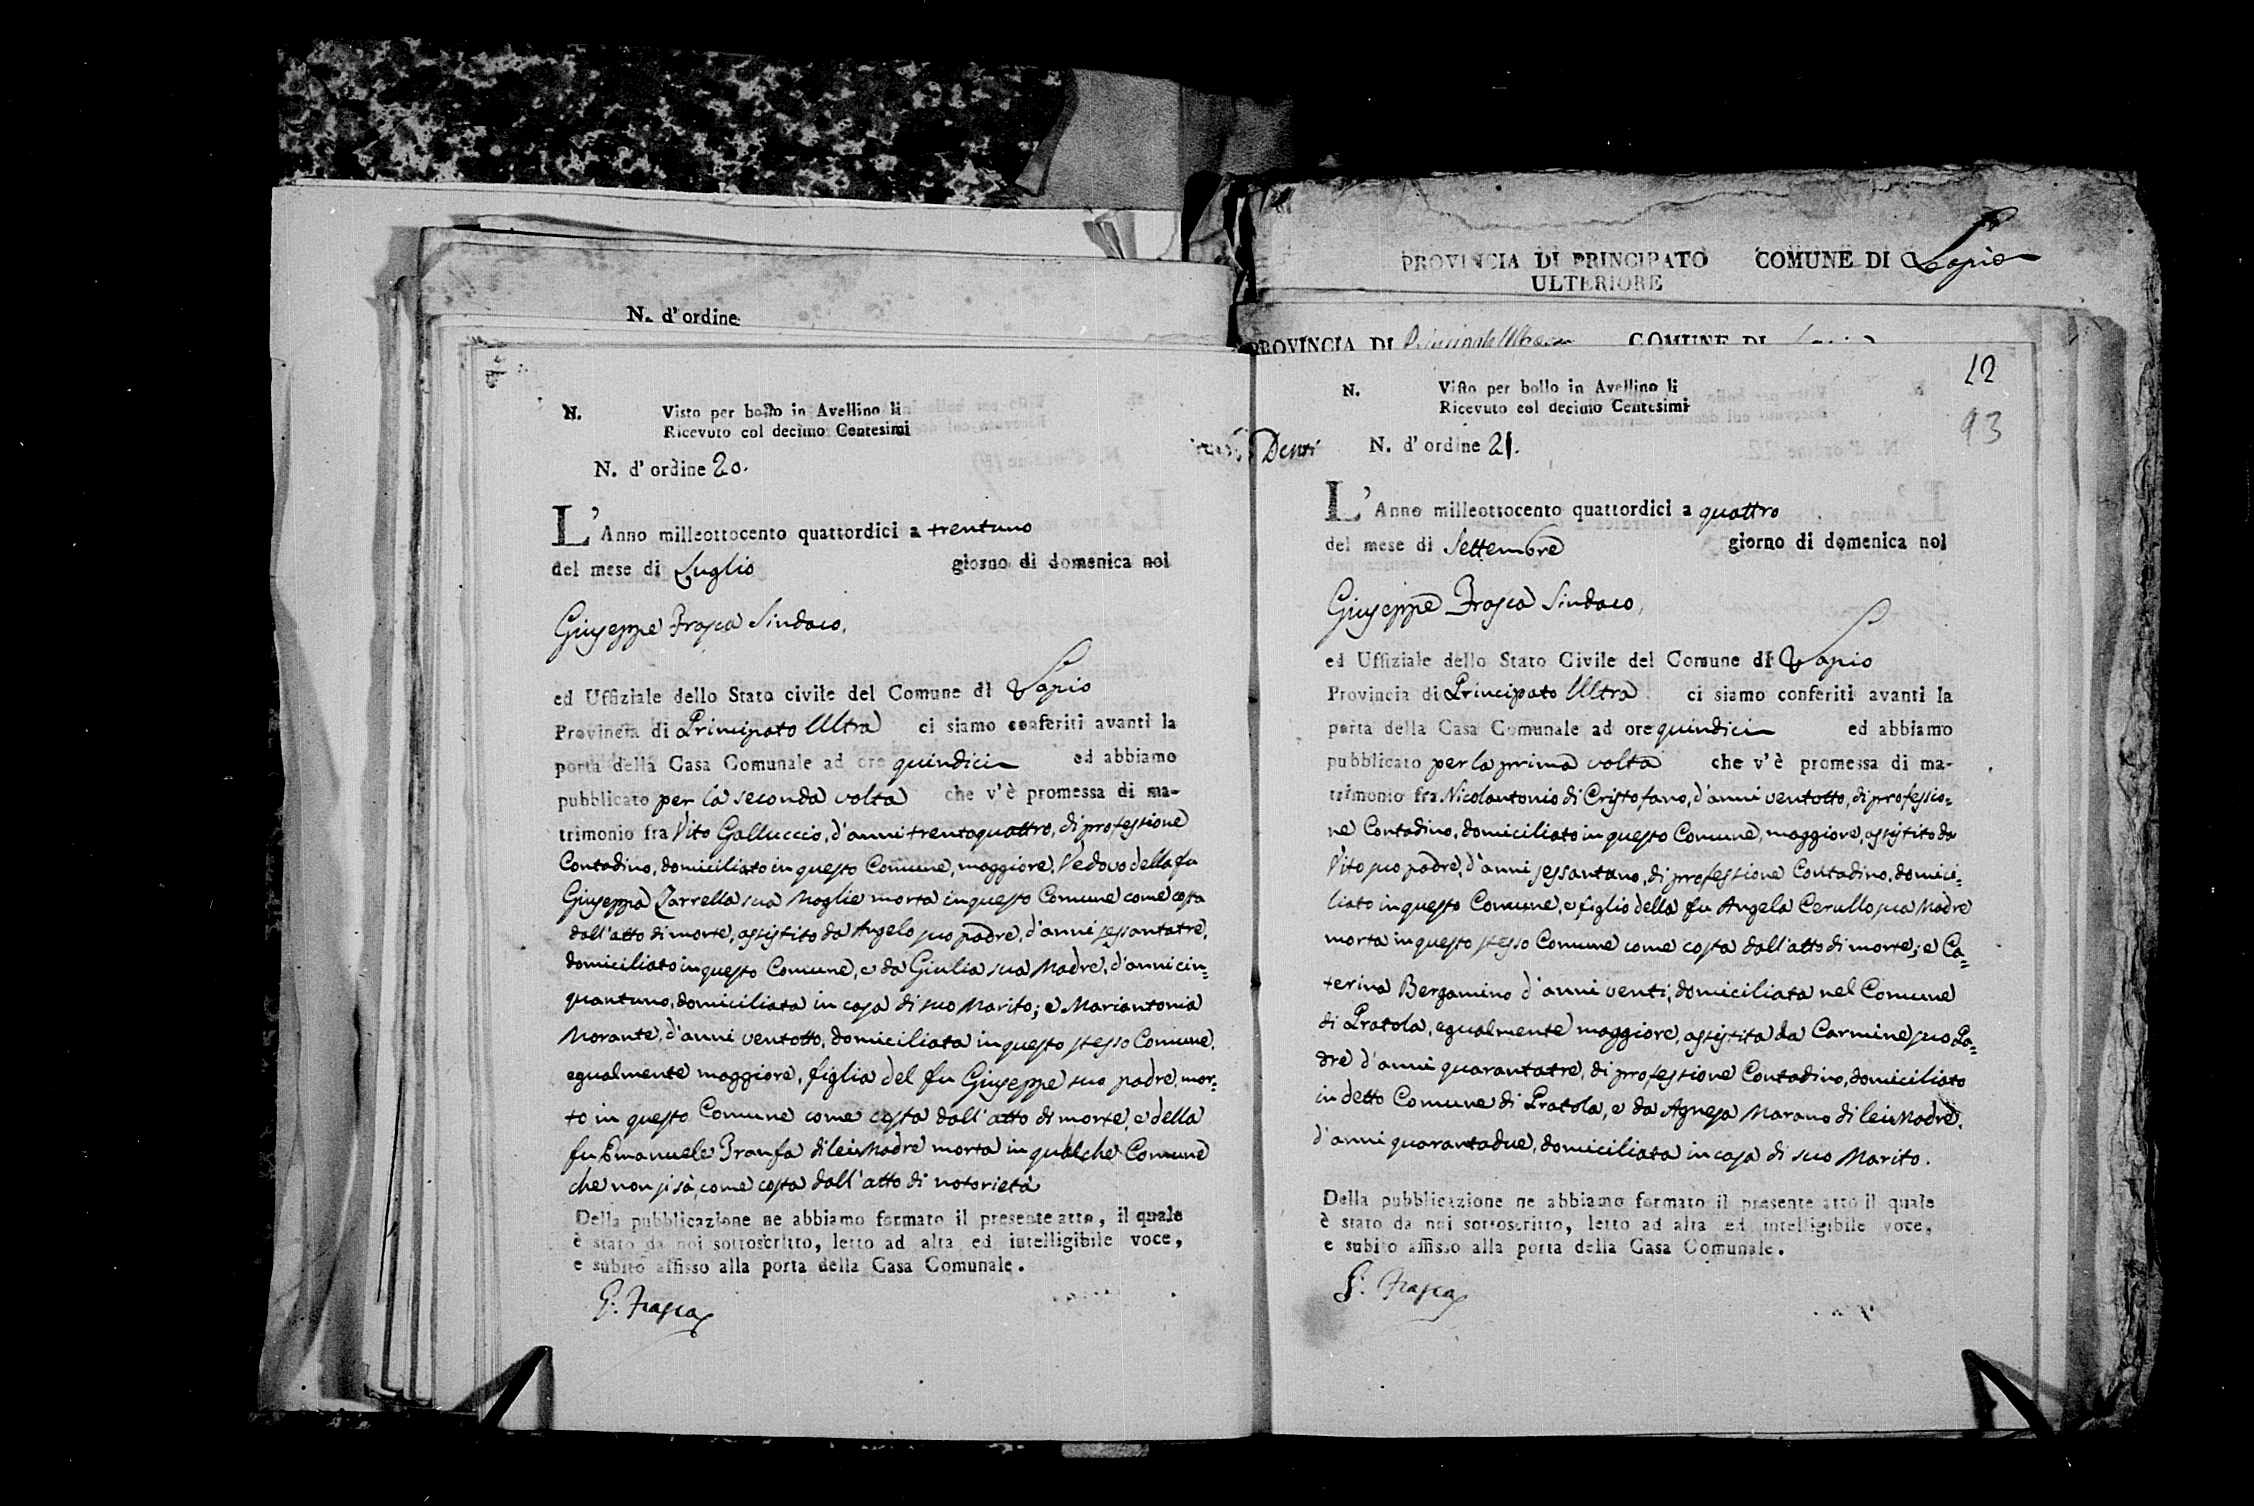 N. d' ordine
N. Visto per bollo in Avellino li
Ricevuto col decimo Centesimi
N. d' ordine 20.
L'Anno milleottocento quattordici a trentuno
del mese di Luglio giorno di domenica noi
Giuseppe Frasca Sindaco,
ed Uffiziale dello Stato civile del Comune di Lapio
Provincia di Principato Ultra ci siamo conferiti avanti la
porta della Casa Comunale ad ore quindici ed abbiamo
pubblicato per la seconda volta che v'è promessa di ma-
trimonio fra Vito Galluccio, d'anni trentaquattro, di professione
Contadino, domiciliato in questo Comune, maggiore, Vedovo della fu
Giuseppa Zarrella sua Moglie morta in questo Comune come costa
dall'atto di morte, assistito da Angelo suo padre, d'anni sessantatre,
domiciliato in questo Comune, e da Giulia sua Madre, d'anni cin=
quantuno, domiciliata in casa di suo Marito; e Mariantonia
Morante, d'anni ventotto, domiciliata in questo stesso Comune,
egualmente maggiore, figlia del fu Giuseppe suo padre, mor=
to in questo Comune come costa dall'atto di morte, e della
fu Emanuele Tranfa di lei Madre morta in qualche Comune
che non si sà, come costa dall'atto di notorietà
Della pubblicazione ne abbiamo formato il presente atto, il quale
è stato da noi sottoscritto, letto ad alta ed intelligibile voce,
e subito affisso alla porta della Casa Comunale.
G. Frasca
PROVINCIA DI PRINCIPATO COMUNE DI Lapio
ULTERIORE
PROVINCIA DI COMUNE DI
12
93
N. Visto per bollo in Avellino li
Ricevuto col decimo Centesimi
N. d' ordine 21.
L'Anno milleottocento quattordici a quattro
del mese di Settembre giorno di domenica noi
Giuseppe Frasca Sindaco,
ed Uffiziale dello Stato Civile del Comune di Lapio
Provincia di Principato Ultra ci siamo conferiti avanti la
porta della Casa Comunale ad ore quindici ed abbiamo
pubblicato per la prima volta che v'è promessa di ma-
trimonio fra Nicolantonio di Cristofano, d'anni ventotto, di professio=
ne Contadino, domiciliato in questo Comune, maggiore, assistito da
Vito suo padre, d'anni sessantuno, di professione Contadino, domici=
liato in questo Comune, e figlio della fu Angela Cerullo sua Madre
morta in questo stesso Comune come costa dall'atto di morte; e Ca=
terina Bergamino d'anni venti, domiciliata nel Comune
di Pratola, egualmente maggiore, assistita da Carmine suo Pa=
dre d'anni quarantatre, di professione Contadino, domiciliato
in detto Comune di Pratola, e da Agnesa Marano di lei Madre,
d'anni quarantadue, domiciliata in casa di suo Marito.
Della pubblicazione ne abbiamo formato il presente atto il quale
è stato da noi sottoscritto, letto ad alta ed intelligibile voce,
e subito affisso alla porta della Casa Comunale.
G. Frasca